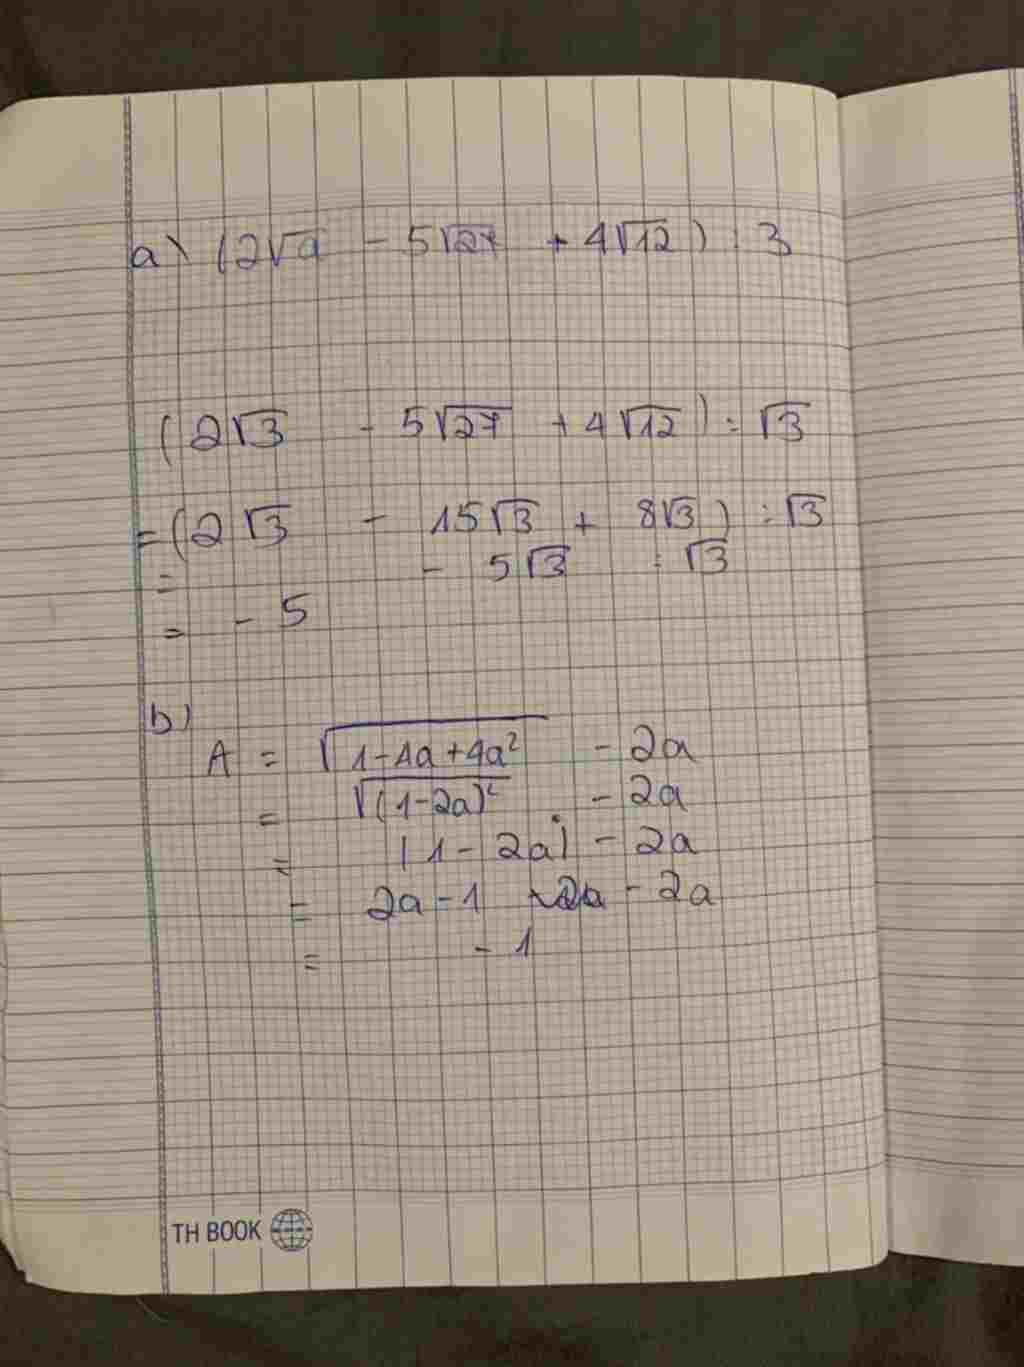 a) (2√9 - 5√27 + 4√12) : 3
(2√3 - 5√27 + 4√12) : √3
= (2√3 - 15√3 + 8√3) : √3
= - 5√3 : √3
= - 5
b)
A = √(1-4a+4a²) - 2a
= √(1-2a)² - 2a
= |1 - 2a| - 2a
= 2a - 1 - 2a
= - 1
TH BOOK